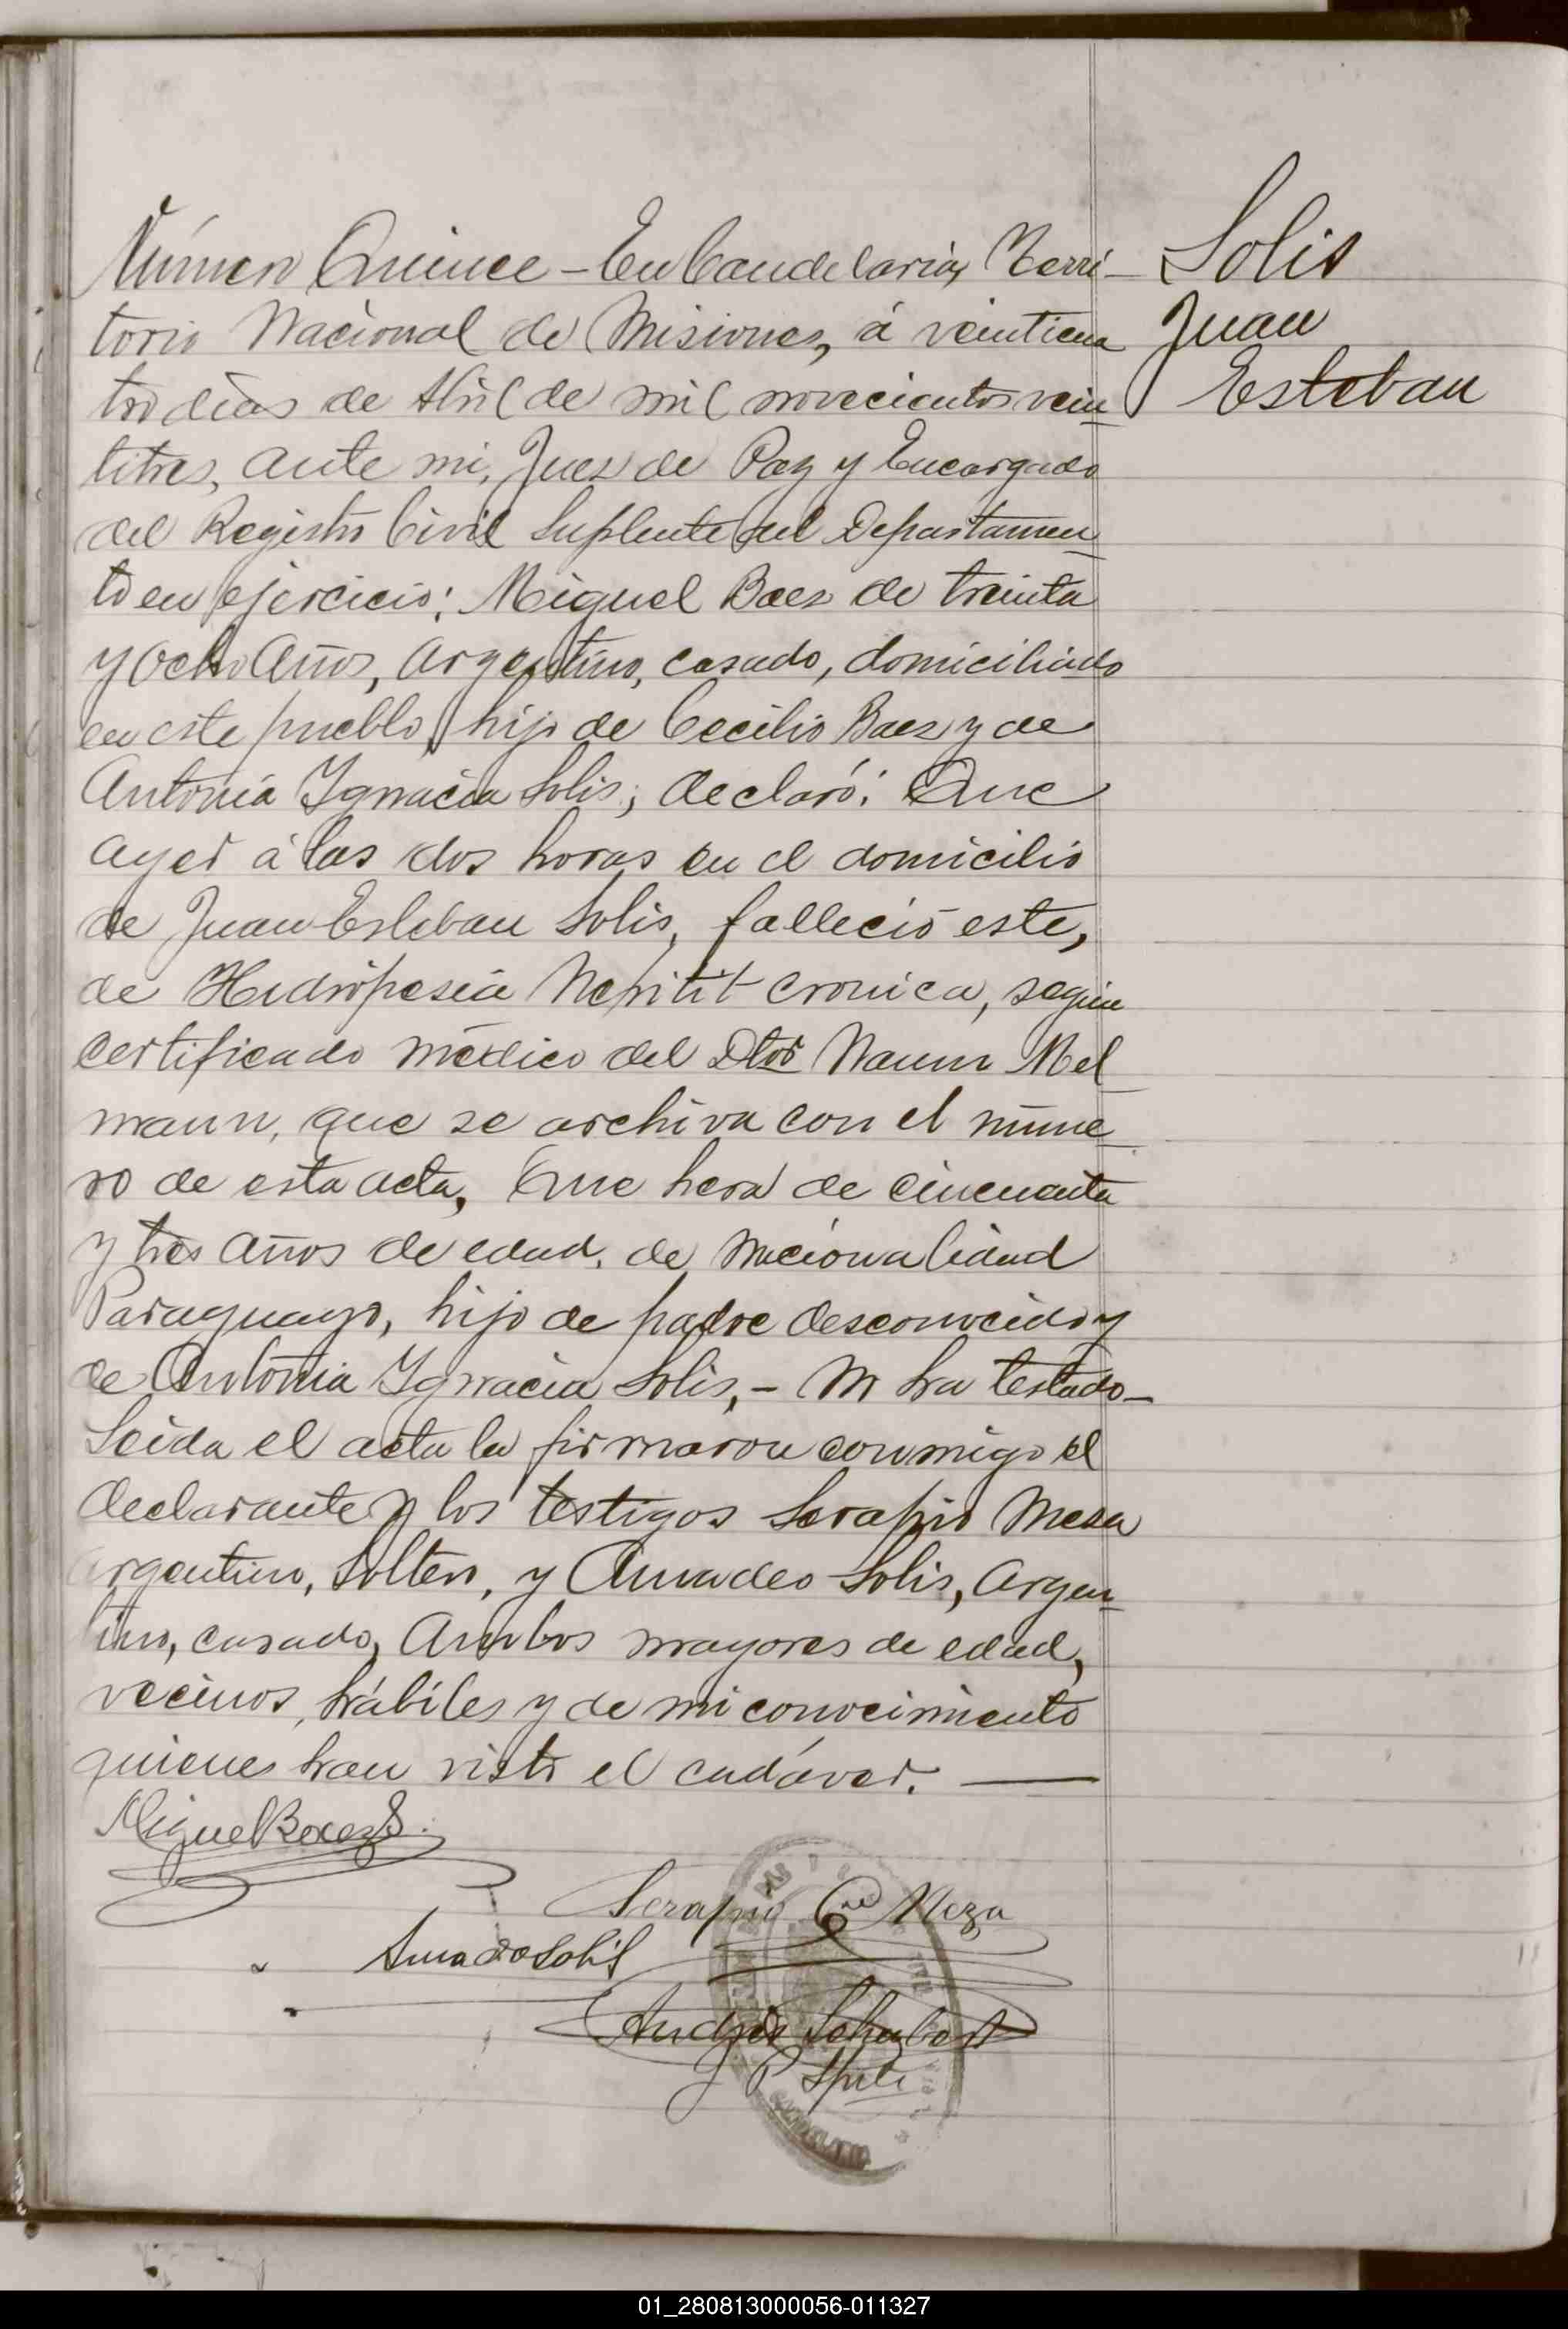 Número Quince - En Candelaria, Terri-
torio Nacional de Misiones, á veinticua
tro dias de Abril de mil novecientos vein
titres, ante mi, Juez de Paz y Encargado
del Registro Civil Suplente del Departamen
to en ejercicio: Miguel Baez de treinta
y ocho años, argentino, casado, domiciliado
en este pueblo, hijo de Cecilio Baez y de
Antonia Ygnacia Solis; declaró: Que
ayer á las dos horas en el domicilio
de Juan Esteban Solis, falleció este,
de Hidropesia Nefritit cronica, segun
certificado médico del Dtor Naum Mel
mann, que se archiva con el núme
ro de esta acta, Que hera de cincuenta
y tres años de edad, de nacionalidad
Paraguayo, hijo de padre desconocido y
de Antonia Ygnacia Solis, - No ha testado -
Leida el acta la firmaron conmigo el
declarante y los testigos Serapio Mesa
argentino, soltero, y Amadeo Solis, argen
tino, casado, Ambos mayores de edad,
vecinos, hábiles y de mi conocimiento
quienes han visto el cadáver. —
Solis
Juan
Esteban
Miguel Baez S.
Serapio Meza
Amado Solis
Andrés Schubert
J P Splte
CANDELARIA
01_280813000056-011327